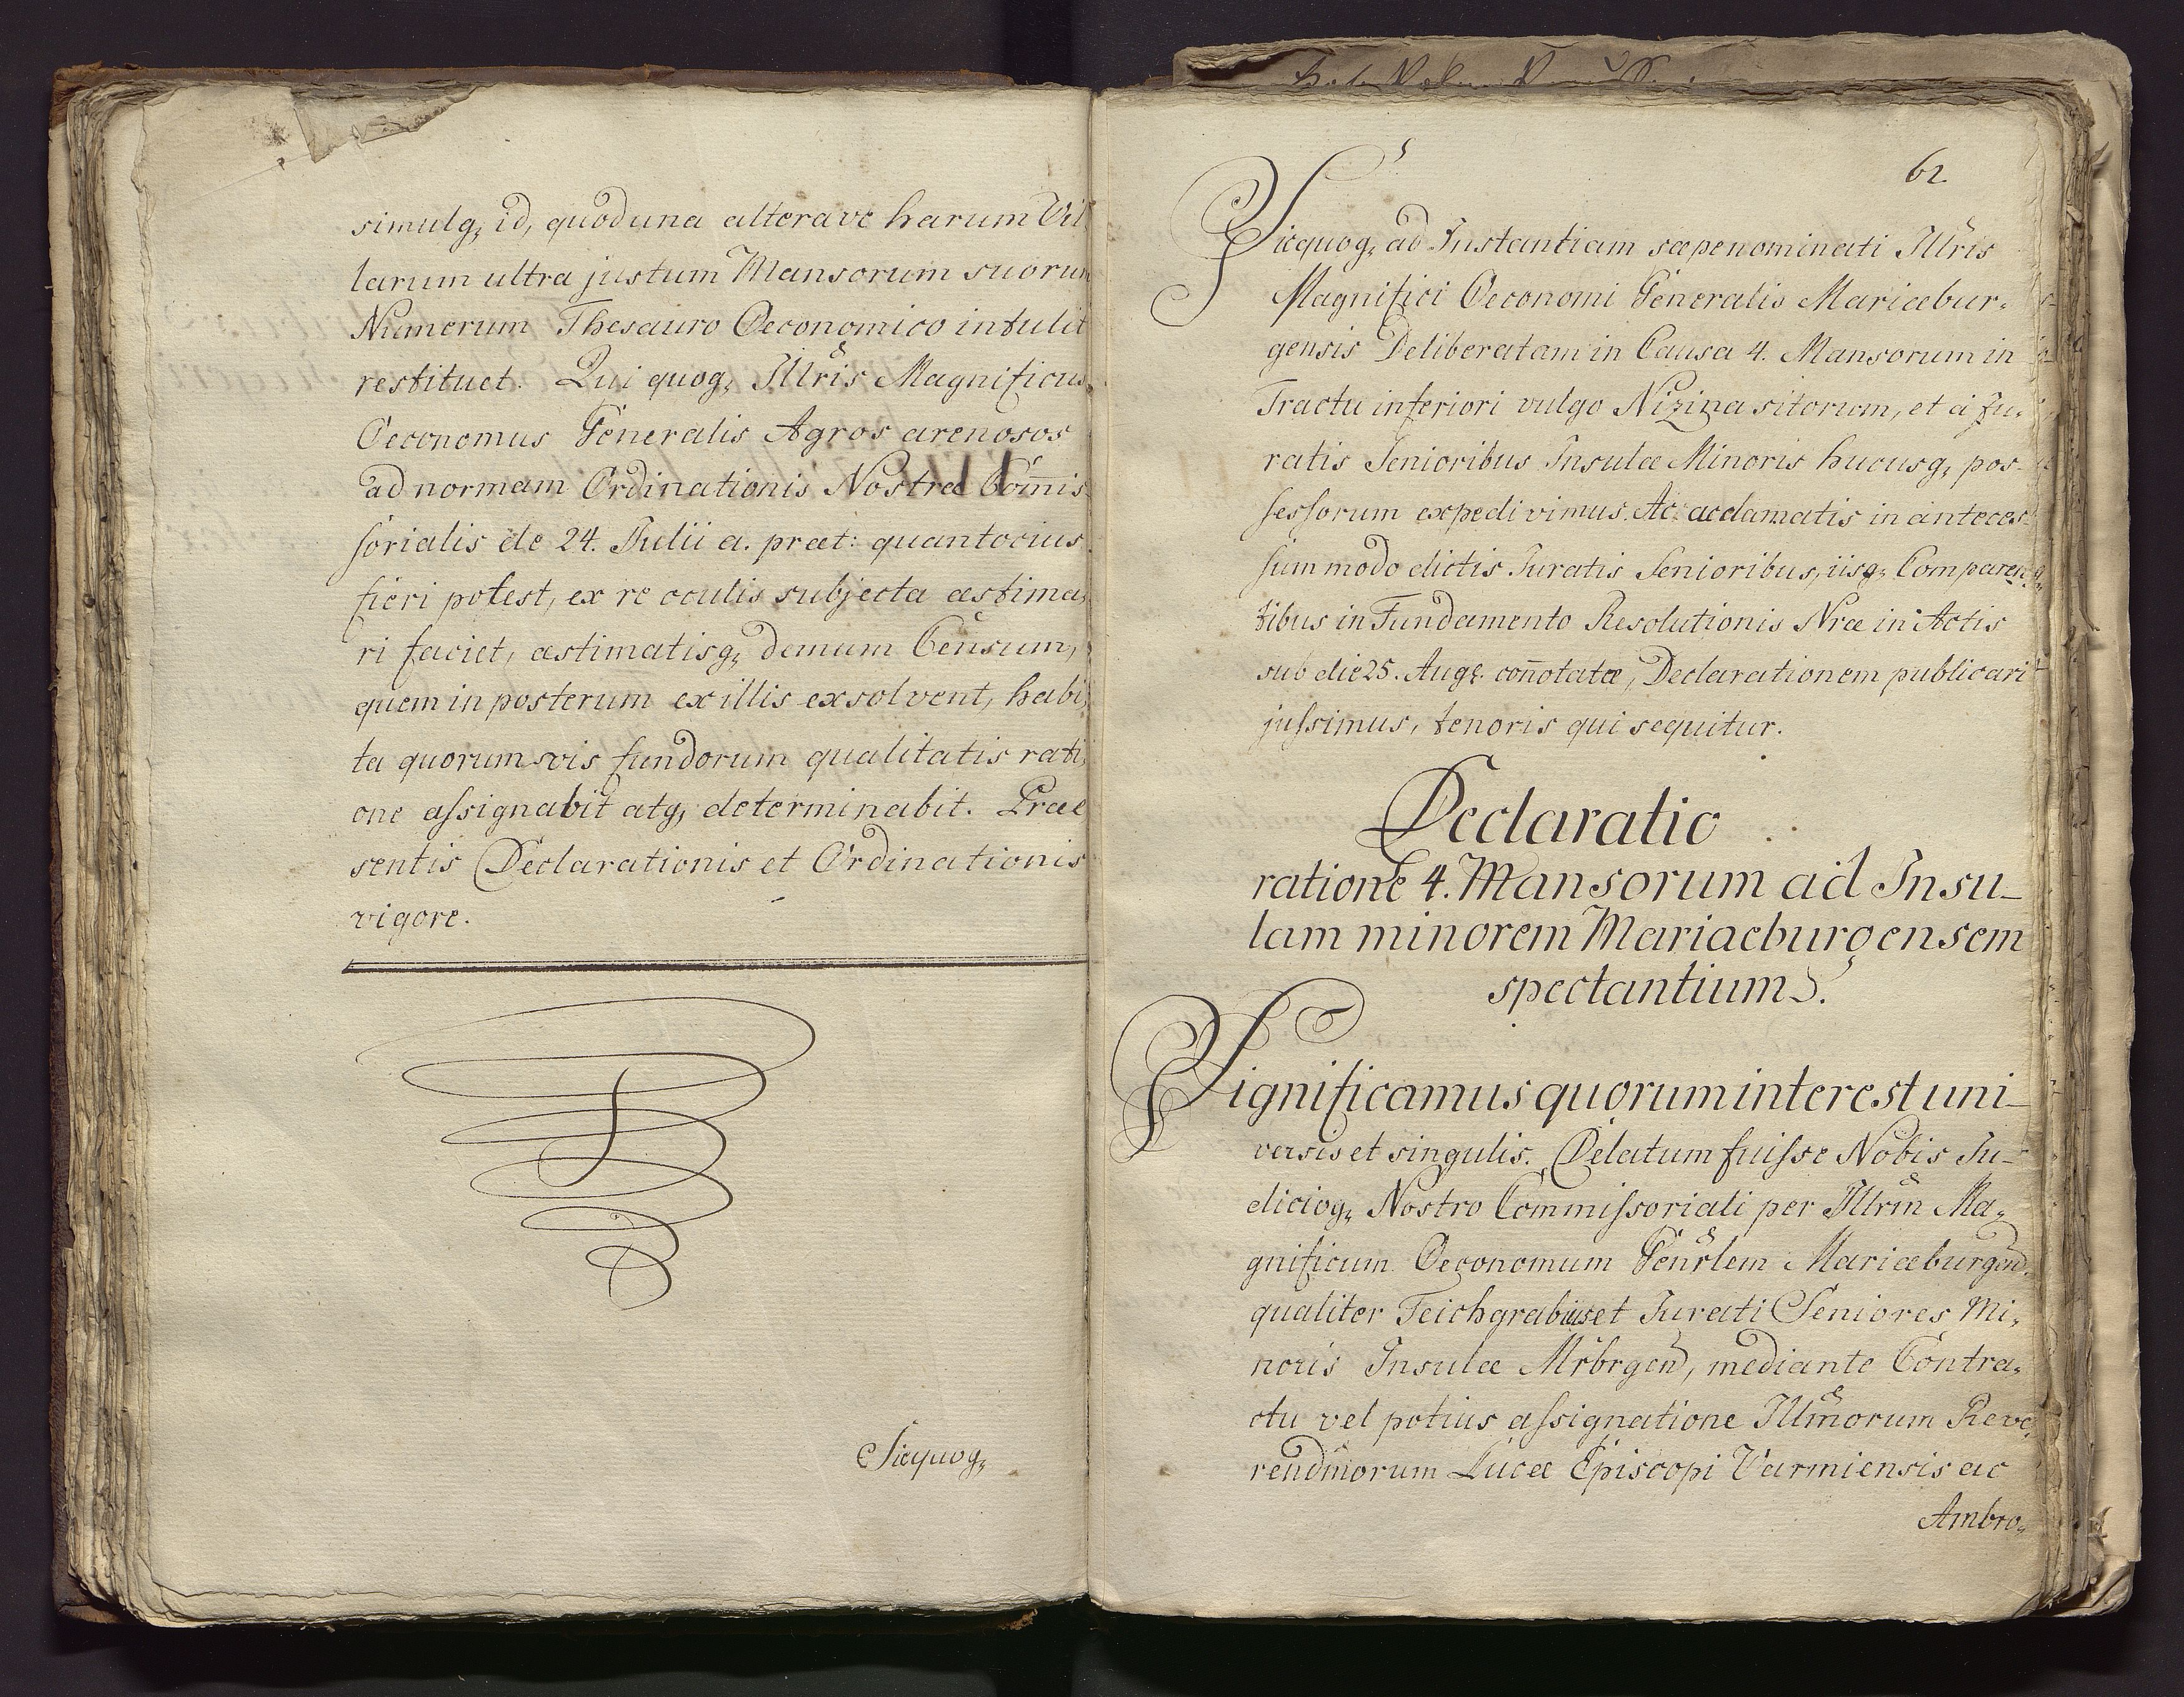 simulq, id, quod una alterave harum Vil
larum ultra justum Mansorum suorum
Numerum Thesauro Oeconomico intulit
restituet. Qui quoq, Illris Magnificus
Oeconomus Generalis Agros arenosos
ad normam Ordinationis Nostræ Com̄is
sorialis de 24. Julii a. præt: quantocius
fieri potest, ex re oculis subjecta æstima,
ri faciet, æstimatisq, demum Censum,
quem in posterum ex illis exsolvent, habi,
ta quorumvis fundorum qualitatis rati,
one assignabit atq, determinabit. Præ
sentis Declarationis et Ordinationis
vigore.
Sicquoq,
62
Sicquoq, ad Instantiam sæpenominati Illris
Magnifici Oeconomi Generalis Mariæbur,
gensis Deliberatam in Causa 4. Mansorum in
Tractu inferiori vulgo Nizina sitorum, et à Ju,
ratis Senioribus Insulæ Minoris hucusq, pos-
sessorum expedivimus. Ac acclamatis in anteces-
sum modo dictis Juratis Senioribus, iisq, Comparen,
tibus in Fundamento Resolutionis Nræ in Actis
sub die 25. Augs. con̄otatæ, Declarationem publicari
jussimus, tenoris qui sequitur.
Declaratio
ratione 4. Mansorum ad Insu-
lam minorem Mariaeburgensem
spectantium.
Significamus quorum interest uni-
versis et singulis. Delatum fuisse Nobis Ju-
dicioq, Nostro Commissoriali per Illrm Ma,
gnificum Oeconomum Genrlem Mariæburgen.
qualiter Teichgrabius et Jurati Seniores Mi,
noris Insulæ Mrbrgen, mediante Contra,
ctu vel potius assignatione Illmorum Reve,
rendmorum Lucæ Episcopi Varmiensis ac
Ambro,